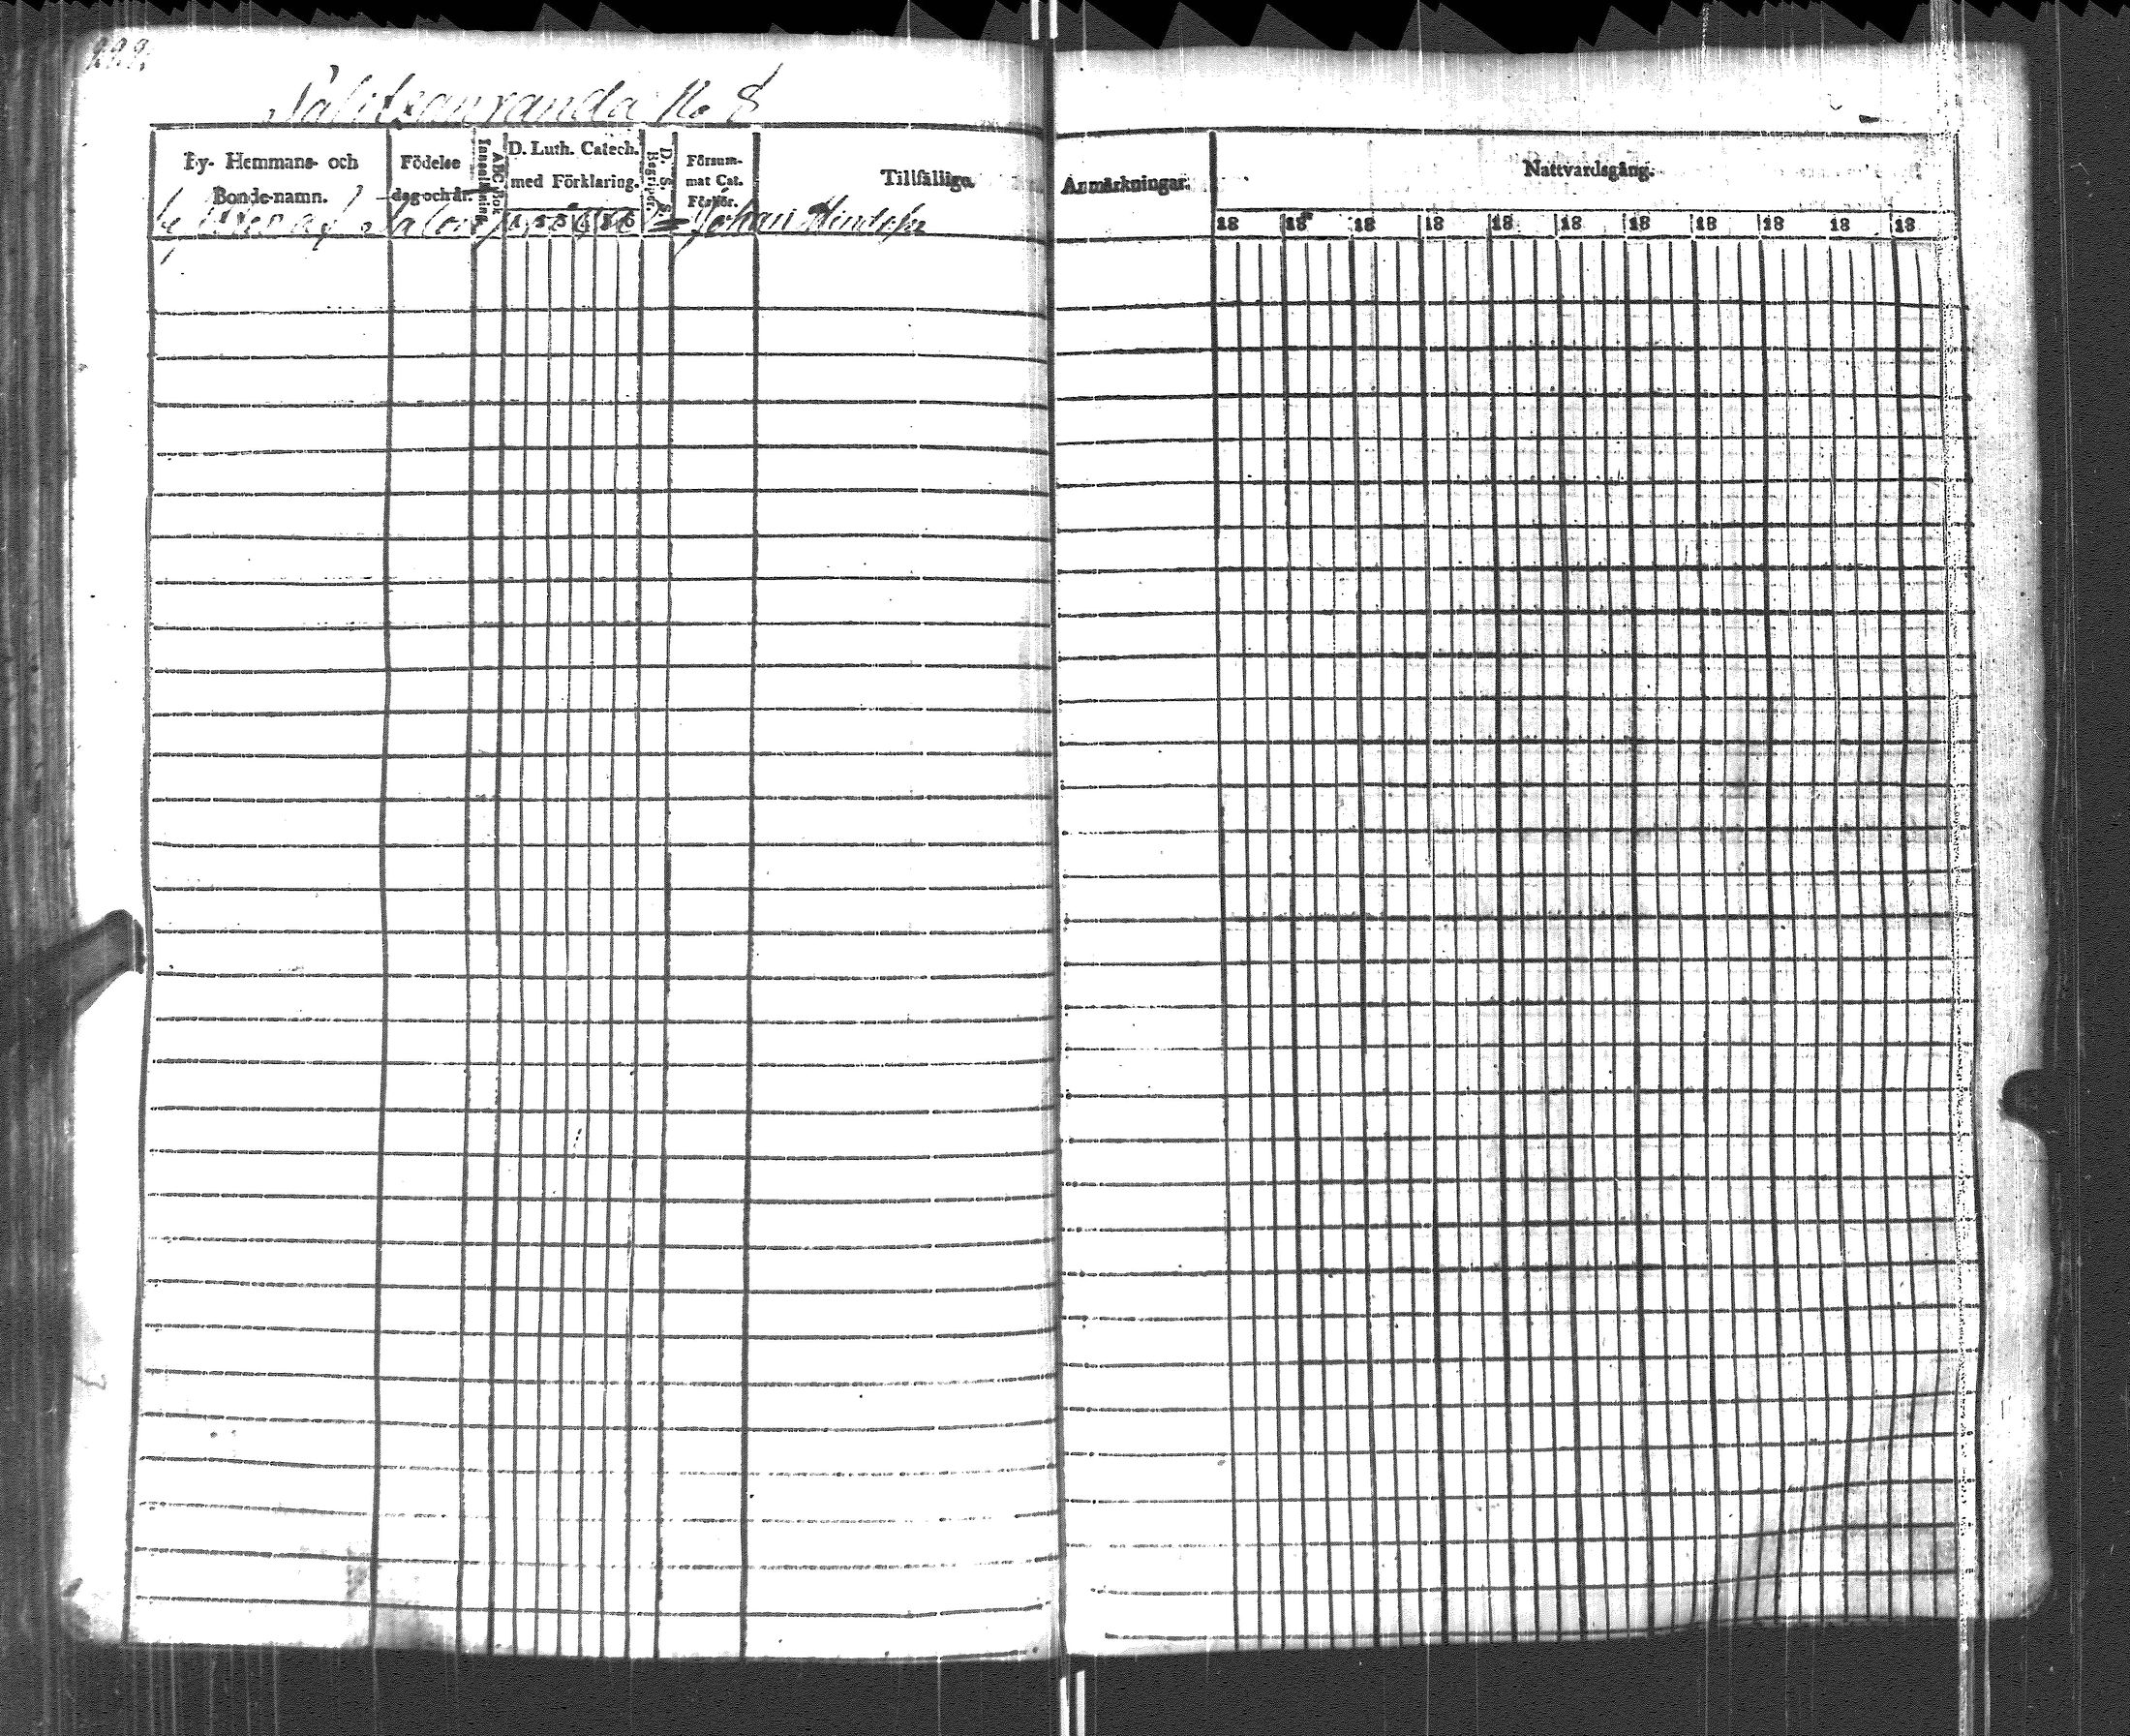 222.
No 8
By- Hemmans- och Bonde-namn.
Födelse dag och år.
ABC Bok Innanläsning.
D. Luth. Catech. med Förklaring.
D. S. S. Begriper.
Försum- mat Cat. Förhör.
Tillfälliga
Anmärkningar.
Nattvardsgång.
Johan
18 18 18 18 18 18 18 18 18 18 18